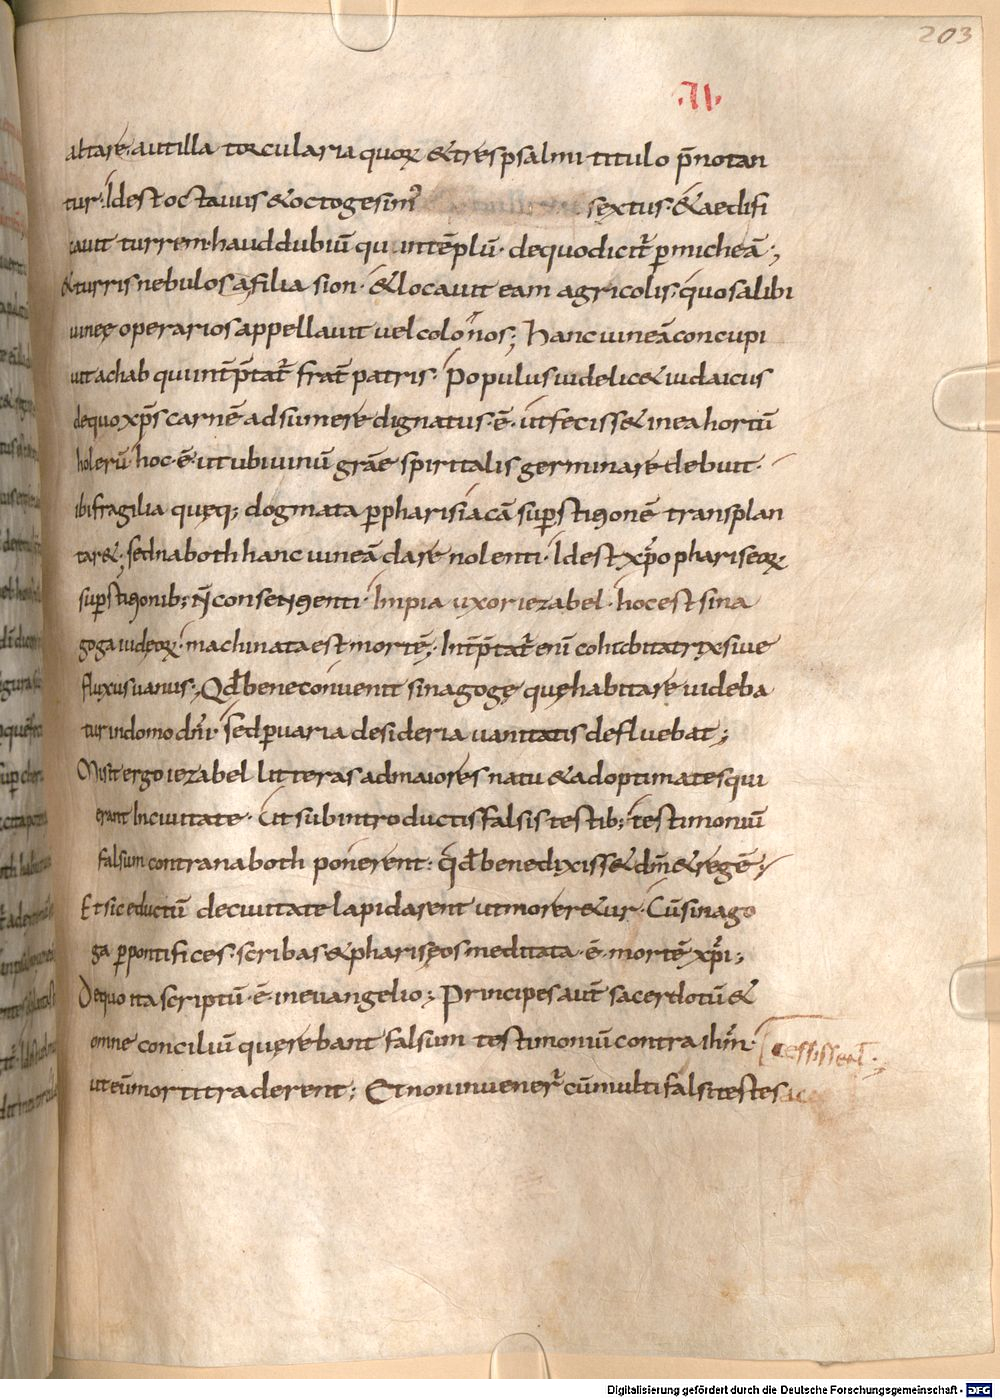 203
·VI·
altare; aut illa torcularia quoꝝ & tres psalmi titulo p̄notan
tur· Id est octauus & octogesimꝰ sextus· & aedifi
cauit turrem· haud dubiū qu intēplū· de quo dicit̄ ꝑ micheā;
& turris nebulosa filia sion· & locauit eam agricolis· quos alibi
uineę operarios appellauit uel colonos; Hanc uineā concupi
uit achab qui int̄p̄tat̄ frat̄ patris· Populus uidelic& iudaicus
de quo xp̄s carnē adsumere dignatus·ē· ut feciss& in ea hortū
holerū hoc·ē· ut ubi uinū grāe spiritalis germinare debuit·
ibi fragilia quęq; dogmata ꝑ pharisiacā suꝑstitionē transplan
tar&; sed naboth hanc uineā dare nolenti· Id est xp̄o phariseoꝝ
suꝑstitionib; n̄ consentienti· Impia uxor iezabel· hoc est sina
goga iudęoꝝ· machinata est mortē; Int̄p̄tat̄ enī cohibitatrix siue
fluxus uanus· Qd̄ bene conuenit sinagogę quę habitare uideba
tur in domo dn̄i· sed ꝑ uaria desideria uanitatis defluebat;
Misit ergo iezabel litteras ad maiores natu & ad optimates qui
erant In ciuitate· Ut subintroductis falsis testib; testimoniū
falsum contra naboth ponerent· qd̄ benedixiss& dm̄ & regē;
Et sic eductū de ciuitate lapidarent ut morer&ur· Cū sinago
ga ꝑ pontifices· scribas & pharisęos meditata·ē· mortē xp̄i;
De quo ita scriptū·ē· in euangelio; Principes aut̄ sacerdotū &
omne conciliū quęrebant falsum testimoniū contra ih̄m·
ut eū morti traderent; Et non inuener̄ cū multi falsi testes ac
cessissent·
Digitalisierung gefördert durch die Deutsche Forschungsgemeinschaft - DFG